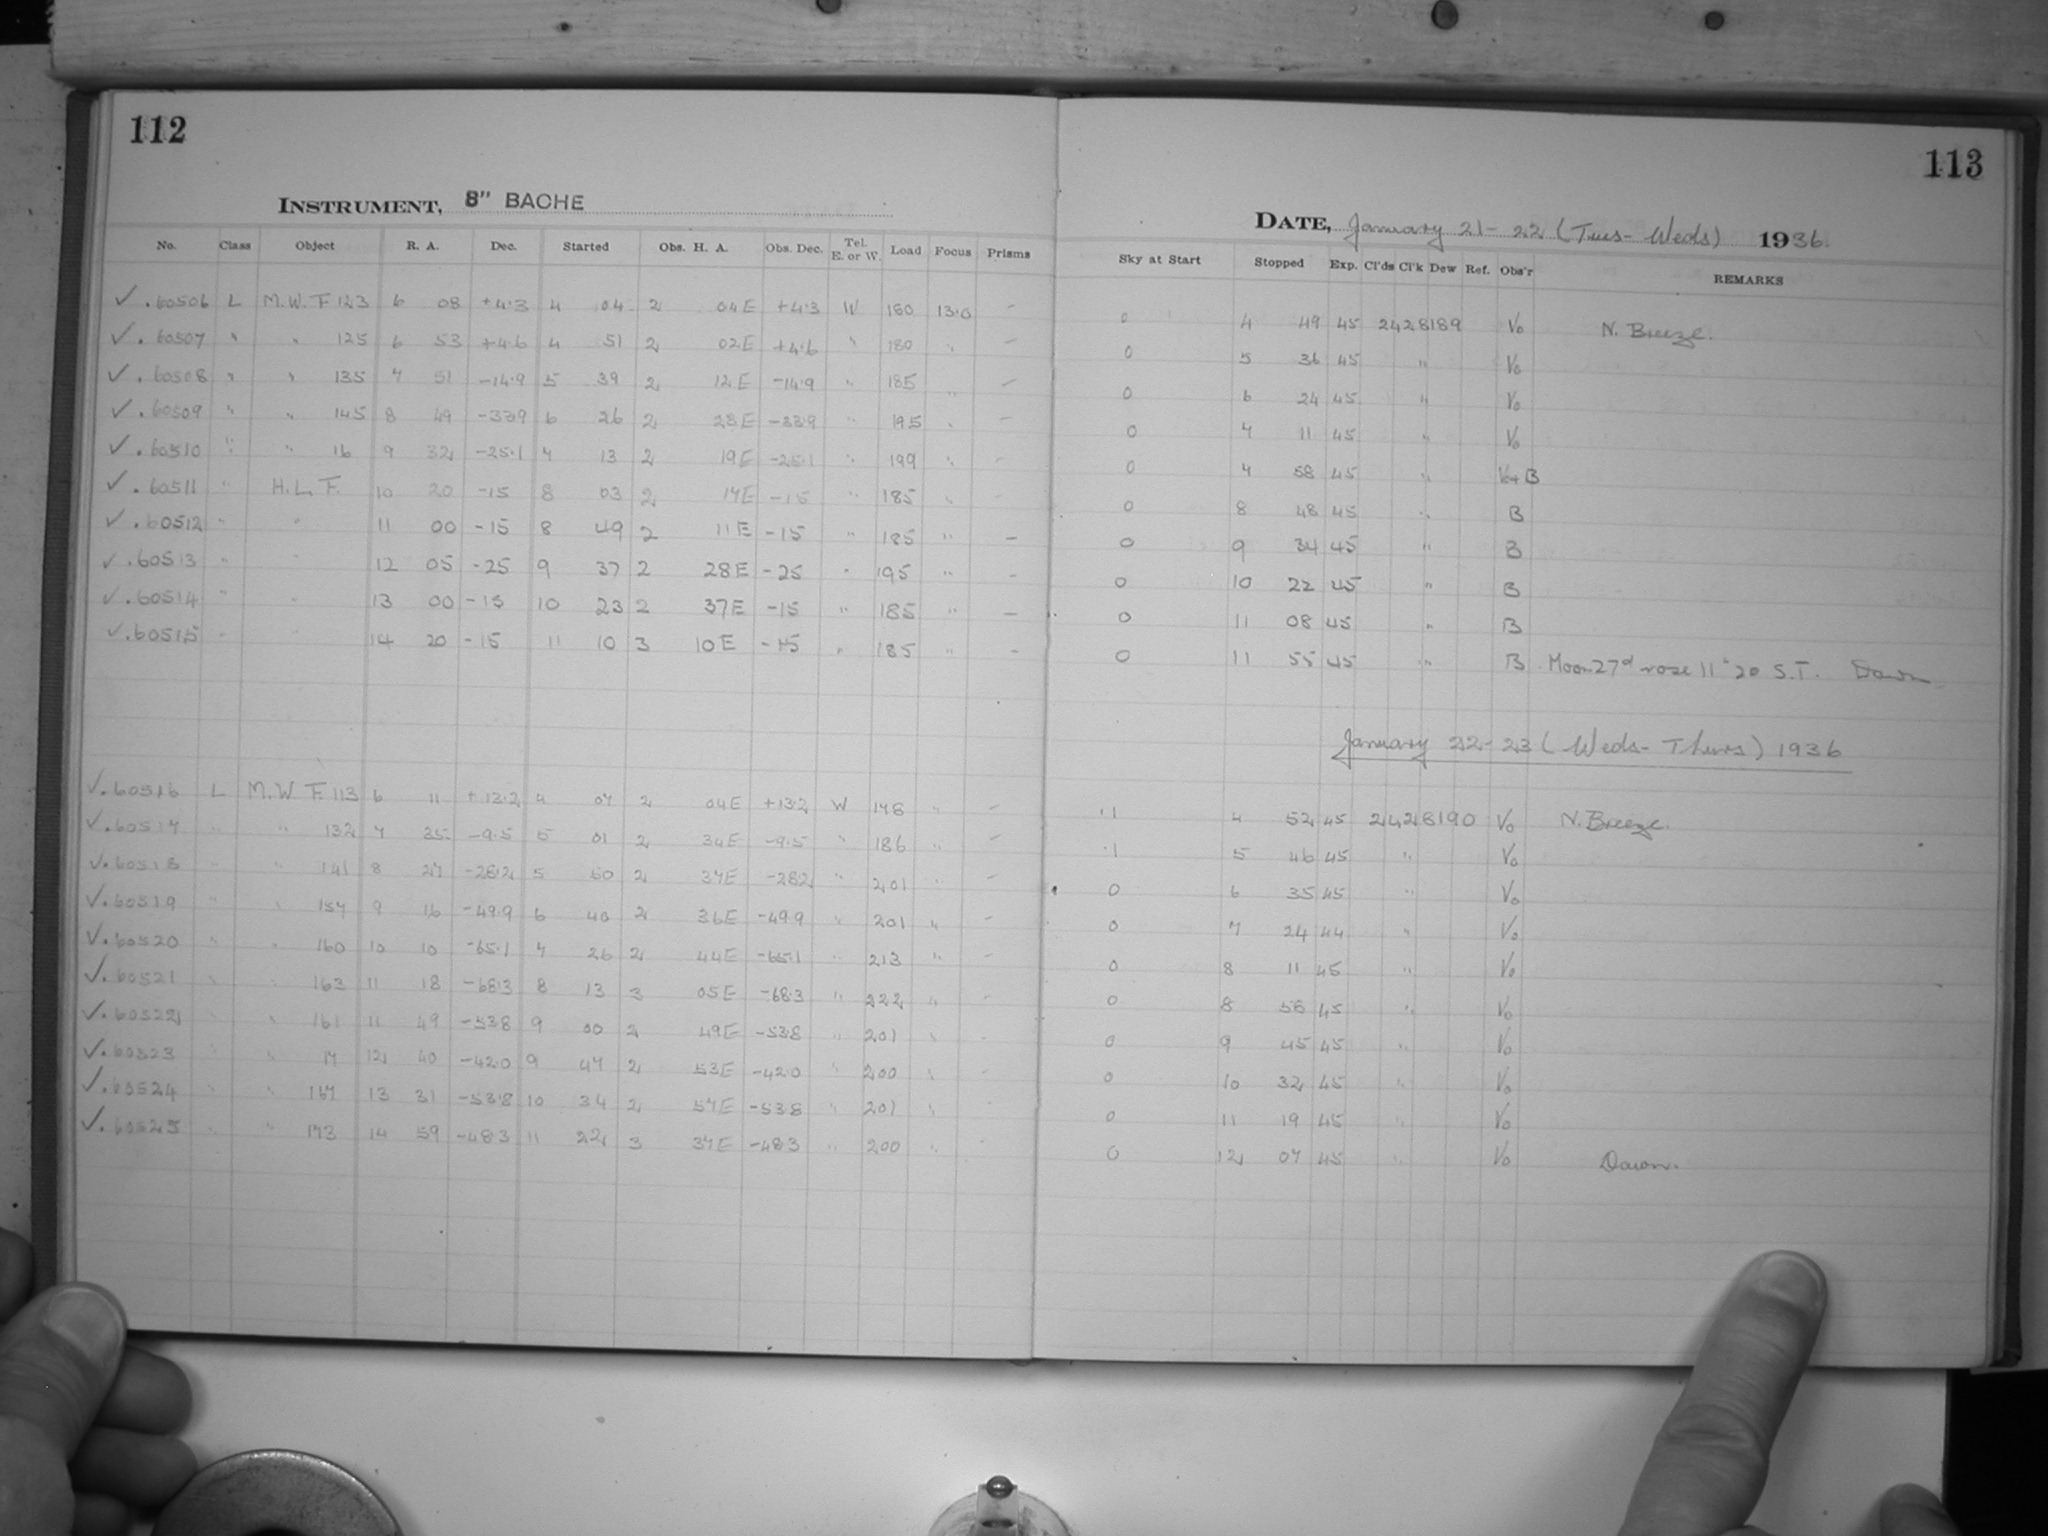 112
INSTRUMENT, 8" BACHE
No. Class Object R. A. Dec. Started Obs. H. A. Obs. Dec. Tel. E. or W. Load Focus Prisms
✓ .60506 L M.W.F. 123 6 08 +4.3 4 04 2 04E +4.3 W 180 13.0 -
✓ .60507 " " 125 6 53 +4.6 4 51 2 02E +4.6 " 180 " -
✓ .60508 " " 135 7 51 -14.9 5 39 2 12E -14.9 " 185 " -
✓ .60509 " " 145 8 49 -33.9 6 26 2 23E -33.9 " 195 " -
✓ .60510 " " 16 9 32 -25.1 7 13 2 19E -25.1 " 199 " -
✓ .60511 " H.L.F. 10 20 -15 8 03 2 17E -15 " 185 " -
✓ .60512 " " 11 00 -15 8 49 2 11E -15 " 185 " -
✓ .60513 " " 12 05 -25 9 37 2 28E -25 " 195 " -
✓ .60514 " " 13 00 -15 10 23 2 37E -15 " 185 " -
✓ .60515 " " 14 20 -15 11 10 3 10E -15 " 185 " -
✓ .60516 L M.W.F. 113 6 11 +13.2 4 07 2 04E +13.2 W 178 " -
✓ .60517 " " 132 7 35 -9.5 5 01 2 34E -9.5 " 186 " -
✓ .60518 " " 141 8 27 -28.2 5 50 2 37E -28.2 " 201 " -
✓ .60519 " " 157 9 16 -49.9 6 40 2 36E -49.9 " 201 " -
✓ .60520 " " 160 10 10 -65.1 7 26 2 44E -65.1 " 213 " -
✓ .60521 " " 163 11 18 -68.3 8 13 3 05E -68.3 " 222 " -
✓ .60522 " " 161 11 49 -53.8 9 00 2 49E -53.8 " 201 " -
✓ .60523 " " 17 12 40 -42.0 9 47 2 53E -42.0 " 200 " -
✓ .60524 " " 167 13 31 -53.8 10 34 2 57E -53.8 " 201 " -
✓ .60525 " " 173 14 59 -48.3 11 22 3 37E -48.3 " 200 " -
113
DATE, January 21-22 (Tues-Weds) 1936.
Sky at Start Stopped Exp. Cl'ds Cl'k Dew Ref. Obs'r REMARKS
0 4 49 45 2428189 Vo N. Breeze.
0 5 36 45 " Vo
0 6 24 45 " Vo
0 7 11 45 " Vo
0 7 58 45 " Vo+B
0 8 48 45 " B
0 9 34 45 " B
0 10 22 45 " B
0 11 08 45 " B
0 11 55 45 " B Moon 27d rose 11h20 S.T. Dawn
January 22-23 (Weds-Thurs) 1936
.1 4 52 45 2428190 Vo N. Breeze.
.1 5 46 45 " Vo
0 6 35 45 " Vo
0 7 24 44 " Vo
0 8 11 45 " Vo
0 8 58 45 " Vo
0 9 45 45 " Vo
0 10 32 45 " Vo
0 11 19 45 " Vo
0 12 07 45 " Vo Dawn.